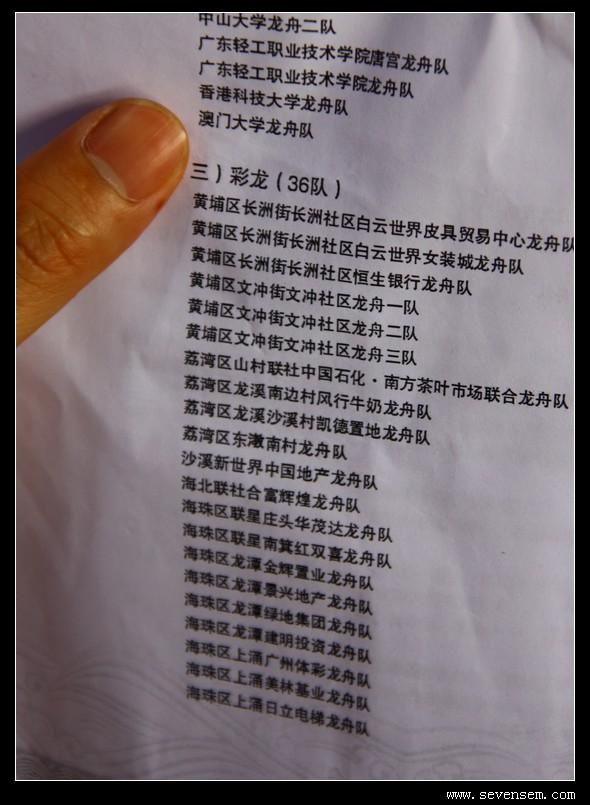 中山大学龙舟二队
广东轻工职业技术学院唐宫龙舟队
广东轻工职业技术学院龙舟队
香港科技大学龙舟队
澳门大学龙舟队
三）彩龙（36队）
黄埔区长洲街长洲社区白云世界皮具贸易中心龙舟队
黄埔区长洲街长洲社区白云世界女装城龙舟队
黄埔区长洲街长洲社区恒生银行龙舟队
黄埔区文冲街文冲社区龙舟一队
黄埔区文冲街文冲社区龙舟二队
黄埔区文冲街文冲社区龙舟三队
荔湾区山村联社中国石化·南方茶叶市场联合龙舟队
荔湾区龙溪南边村风行牛奶龙舟队
荔湾区龙溪沙溪村凯德置地龙舟队
荔湾区东漖南村龙舟队
沙溪新世界中国地产龙舟队
海北联社合富辉煌龙舟队
海珠区联星庄头华茂达龙舟队
海珠区联星南箕红双喜龙舟队
海珠区龙潭金辉置业龙舟队
海珠区龙潭景兴地产龙舟队
海珠区龙潭绿地集团龙舟队
海珠区龙潭建明投资龙舟队
海珠区上涌广州体彩龙舟队
海珠区上涌美林基业龙舟队
海珠区上涌日立电梯龙舟队
www.sevensem.com